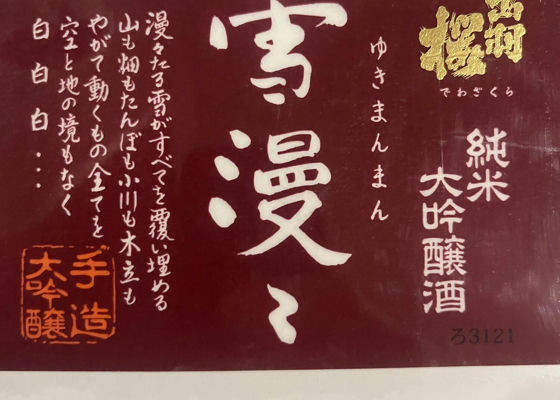 出羽
桜
でわざくら
純米
大吟醸酒
ろ3121
ゆきまんまん
雪漫々
漫々たる雪がすべてを覆い埋める
山も畑もたんぼも小川も木立も
やがて動くもの全てを
空と地の境もなく
白白白・・・
手造
大吟醸